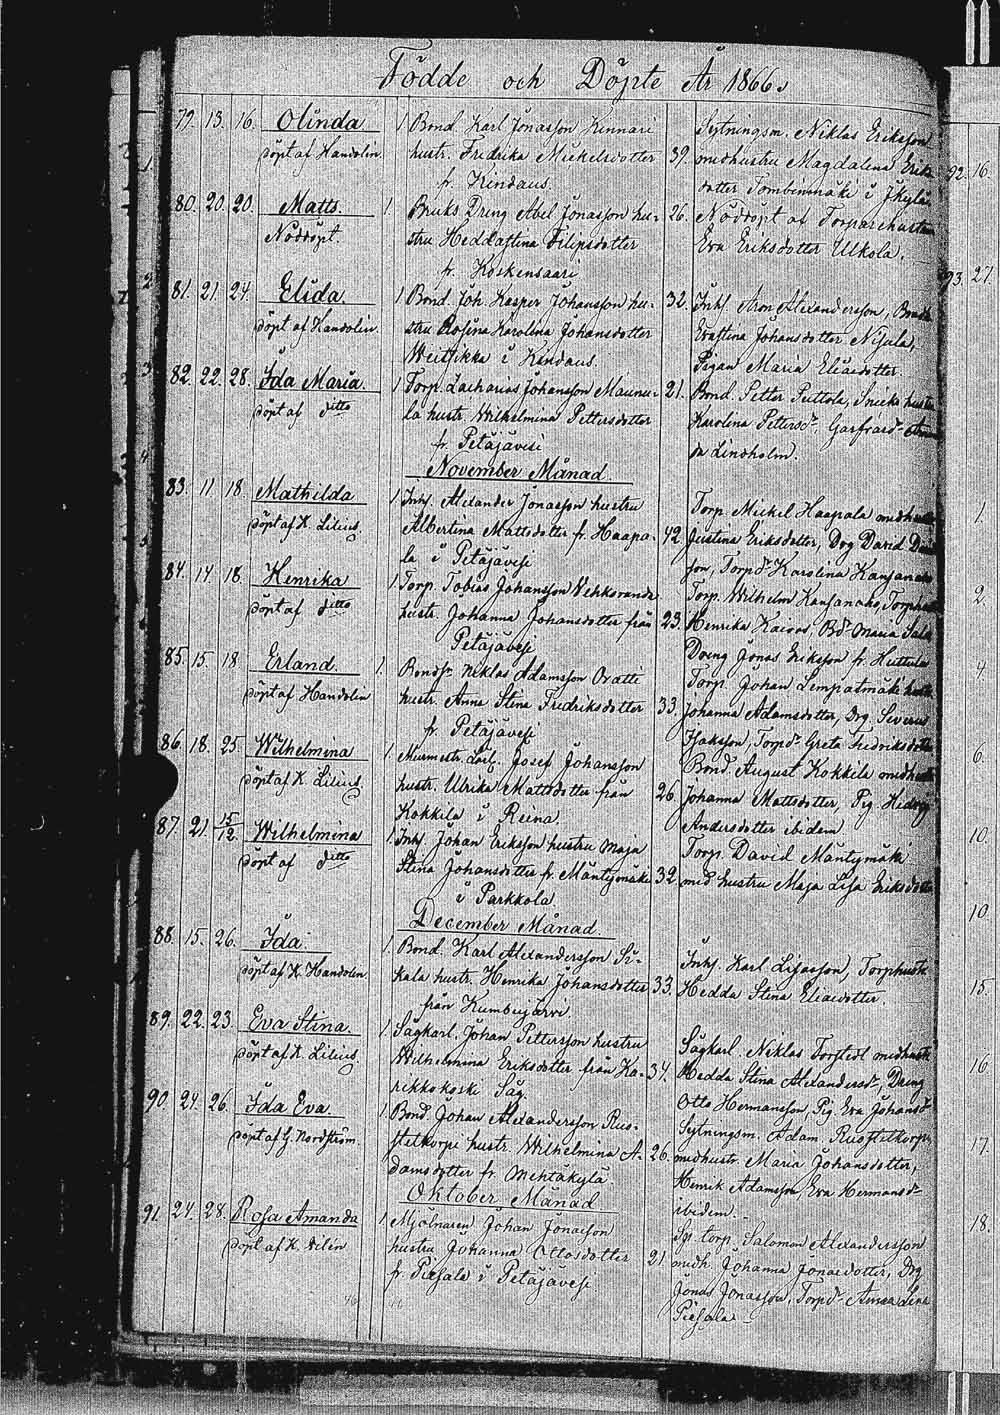 Födde och Döpte År 1866.
79. 13. 16. Olinda 1 Bond. Karl Jonasson Kinnari Sytningsm. Niklas Eriksson
döpt af Handolin. hustr. Fredrika Mickelsdotter 39. medhustru Magdalena Eriks
fr. Kindaus. dotter Tombinmäki i Jkylä
80. 20. 20. Matts. 1. Bruks Dreng Abel Jonasson hu- 26. Nöddöpt af Torparehustrun
Nöddöpt. stru Heddastina Filipsdotter Eva Eriksdotter Ulkola.
fr. Koskensaari
81. 21. 24. Elida. 1 Bond. Joh. Kasper Johansson hu- 32. Inhs. Aron Alexandersson, Bonde
döpt af Handolin. stru Rosina Karolina Johansdotter Evastina Johansdotter Nisula,
Weitsikka i Kindaus. Pigan Maria Eliaedotter.
82. 22. 28. Ida Maria. 1 Torp. Zacharias Johansson Maunu- 21. Bond. Petter Puttola, Snick. hustru
döpt af ditto la hustr. Wilhelmina Pettersdotter Karolina Pettersdr,
fr. Petäjävesi Lindholm.
November Månad.
83. 11. 18. Mathilda 1 Inhs. Alexander Jonasson hustru Torp. Mickel Haapala medhustru
döpt af K. Lilius Albertina Mattsdotter fr. Haapa- 42. Justina Eriksdotter, Drg David
la i Petäjävesi son, Torpdr Karolina
84. 14. 18. Henrika 1 Torp. Tobias Johansson Wehkoranda Torp. Wilhelm
döpt af ditto hustr. Johanna Johansdotter från 23. Henrika Kaivos. Bdr Maria
Petäjävesi Dreng Jonas Eriksson fr. Huttula
85. 15. 18 Erland. 1. Bondsn Niklas Adamsson Oratti Torp. Johan Lempatmäki hustru
döpt af Handolin hustr. Anna Stina Fredriksdotter 33. Johanna Adamsdotter, Drg. Severus
fr. Petäjävesi Isaksson, Torpdr Greta Fredriksdotter
86. 18. 25 Wilhelmina 1. Murmestr. Josef Johansson Bond. August Kokkila medhustru
döpt af K. Lilius. hustr. Ulrika Mattsdotter från 26. Johanna Mattsdotter, Pig. Hedvig
Kokkila i Reina. Andersdotter ibidem
87. 21. 15/12. Wilhelmina 1. Inhs Johan Eriksson hustru Maja Torp. David Mäntymäki
döpt af ditto Stina Johansdotter fr. Mäntymäki 32. med hustru Maja Lisa Eriksdotter
i Parkkola.
December Månad.
88. 15. 26. Ida. 1. Bond. Karl Alexandersson Si- Inhs. Karl Lisasson, Torphustr
döpt af K. Handolin. kala hustr. Henrika Johansdotter 33. Hedda Stina Eliaedotter.
från Kumbujärvi.
89. 22. 23. Eva Stina. 1. Sågkarl. Johan Pettersson hustru Sågkarl. Niklas Forstedt medhustr
döpt af K. Lilius Wilhelmina Eriksdotter från Ka- 34. Hedda Stina Alexandersdr, Dreng
rikkokoski Såg. Otto Hermansson, Pig. Eva Johansdr
90. 24. 26. Ida Eva. 1. Bond. Johan Alexandersson Rus- Sytningsm. Adam Ruostetkorpi,
döpt af G. Nordström. stetkorpi hustr. Wilhelmina A- 26. medhustr. Maria Johansdotter,
damsdotter fr. Mehtäkylä Henrik Adamsson, Eva Hermansdr
Oktober Månad ibidem.
91. 24. 28. Rosa Amanda 1 Mjölnaren Johan Jonasson Torp. Salomon Alexandersson
döpt af K. hustru Johanna Ottosdotter 21 medh. Johanna Jonaedotter, Drg
fr. Piesala i Petäjävesi Jonas Jonasson, Torpdr Amalia Lena
Piesala.
92. 16.
93. 27.
1.
2.
4
6.
10.
10
15.
16
17.
18.